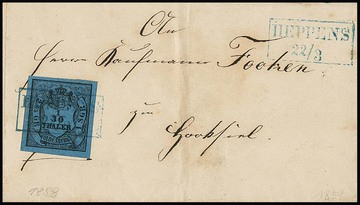 An
HEPPENS
22/3
Herrn Kaufmann Focken
1/30
THALER
zu
Hooksiel.
1858